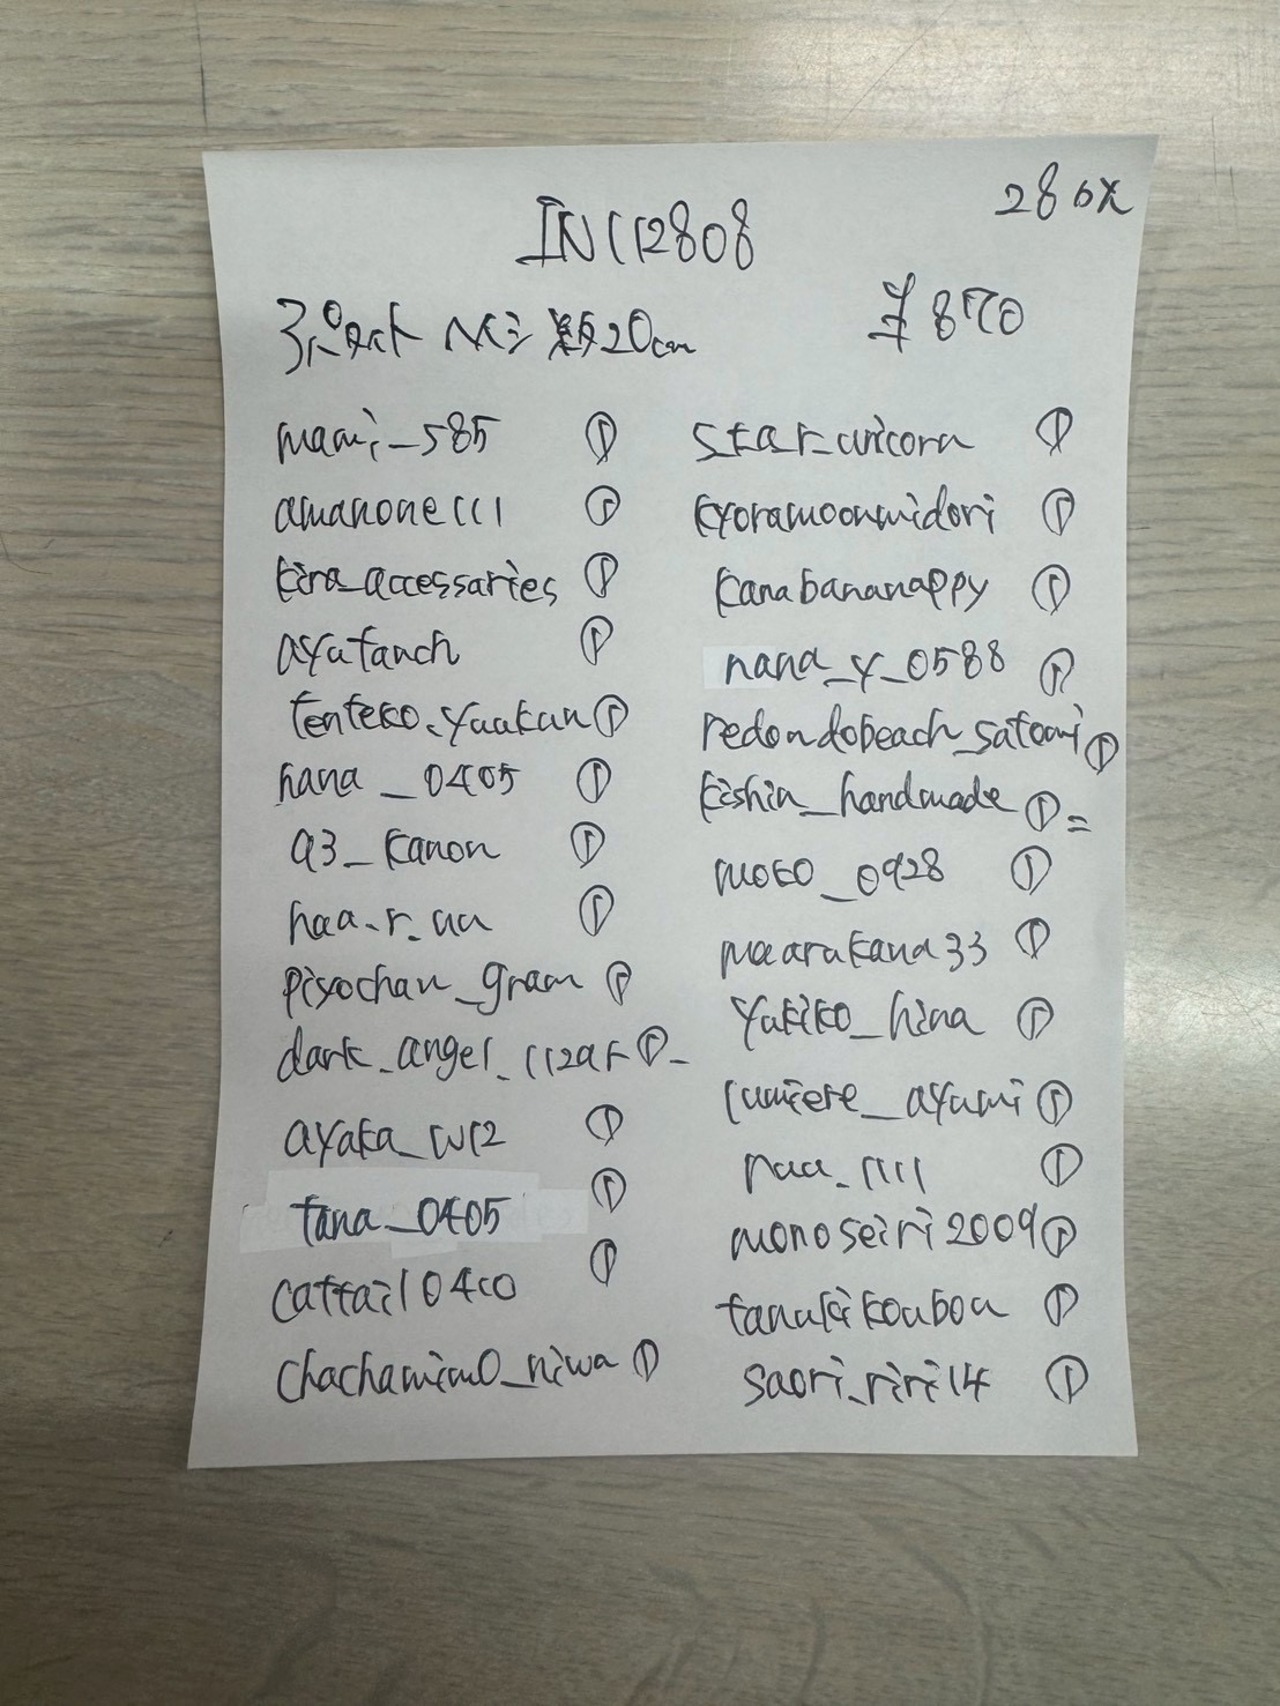 280枚
IN112808
¥870
20cm
mami_585 ①
amanone111 ①
kira_accessaries ①
ayutanch ①
tenteko.yuukun ①
hana_0405 ①
a3_kanon ①
haa.r.uu ①
piyochan_gram ①
dark_angel_112ar ①
ayaka_w12 ①
tana_0405 ①
cattail0410 ①
chachamimo_niwa ①
star_unicorn ①
kyoramoonmidori ①
kanabananappy ①
nana_y_0588 ①
redondobeach_satomi ①
kishin_handmade ①=
moko_0928 ①
maarukana33 ①
yukiko_hina ①
lumiere_ayumi ①
ruu_1111 ①
monoseiri2009 ①
tanukikoubou ①
saori_riri14 ①